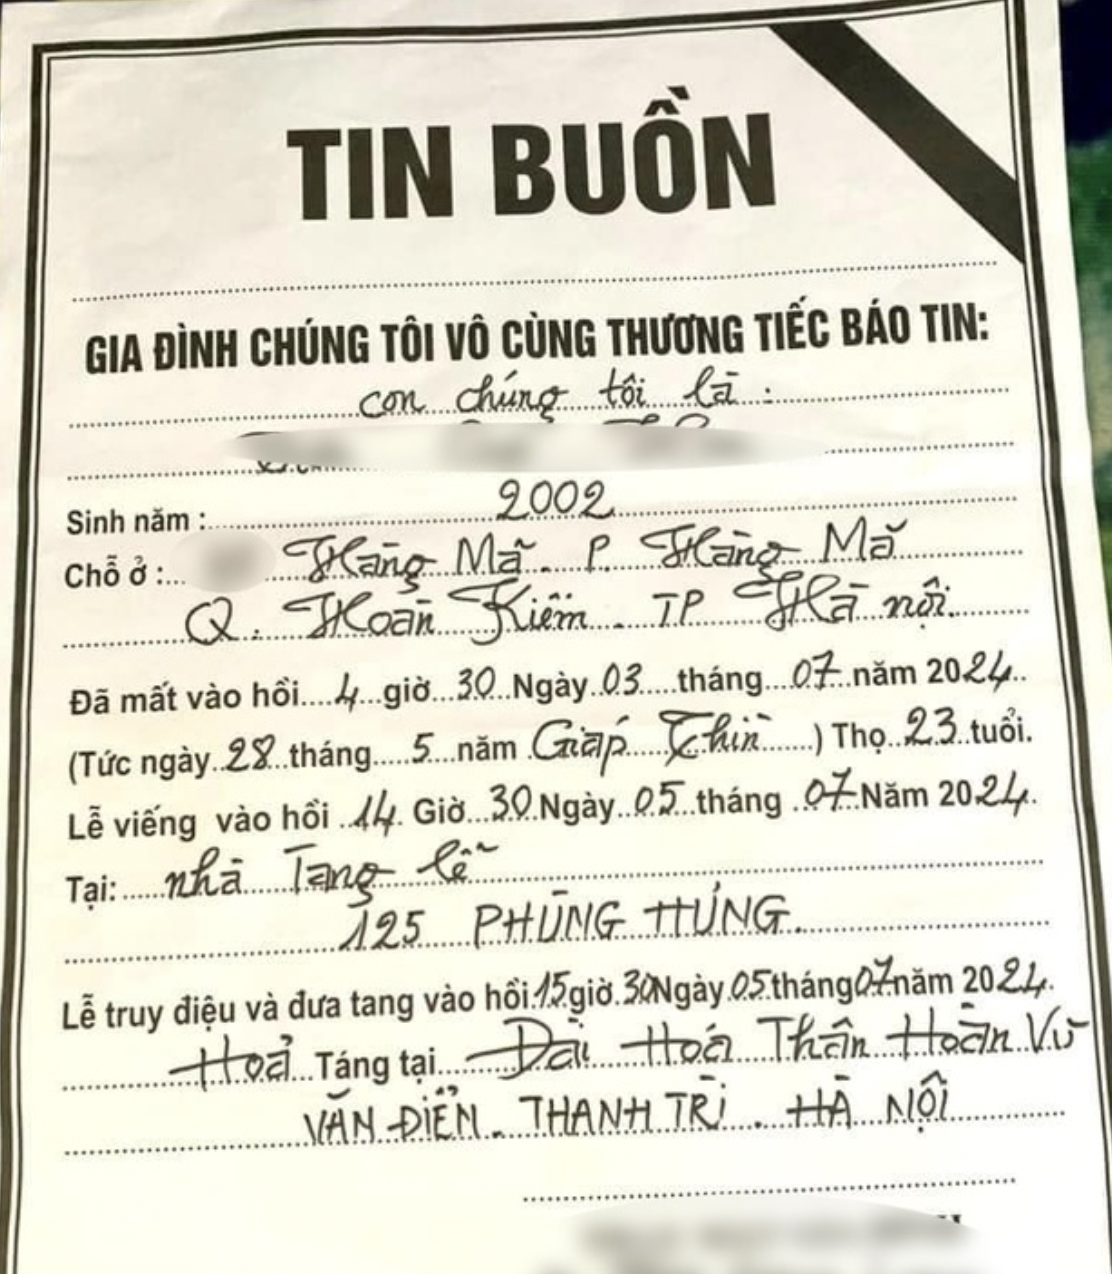 TIN BUỒN
GIA ĐÌNH CHÚNG TÔI VÔ CÙNG THƯƠNG TIẾC BÁO TIN:
con chúng tôi là :
Sinh năm : 2002
Chỗ ở : Hàng Mã. P. Hàng Mã
Q. Hoàn Kiếm. TP Hà nội.
Đã mất vào hồi 4 giờ 30 Ngày 03 tháng 07 năm 2024
(Tức ngày 28 tháng 5 năm Giáp Thìn ) Thọ 23 tuổi.
Lễ viếng vào hồi 14 Giờ 30 Ngày 05 tháng 07 Năm 2024.
Tại: nhà Tang lễ
125 PHÙNG HƯNG.
Lễ truy điệu và đưa tang vào hồi 15 giờ 30 Ngày 05 tháng 07 năm 2024.
Hoả Táng tại Đài Hoá Thân Hoàn Vũ
VĂN ĐIỂN. THANH TRÌ. HÀ NỘI